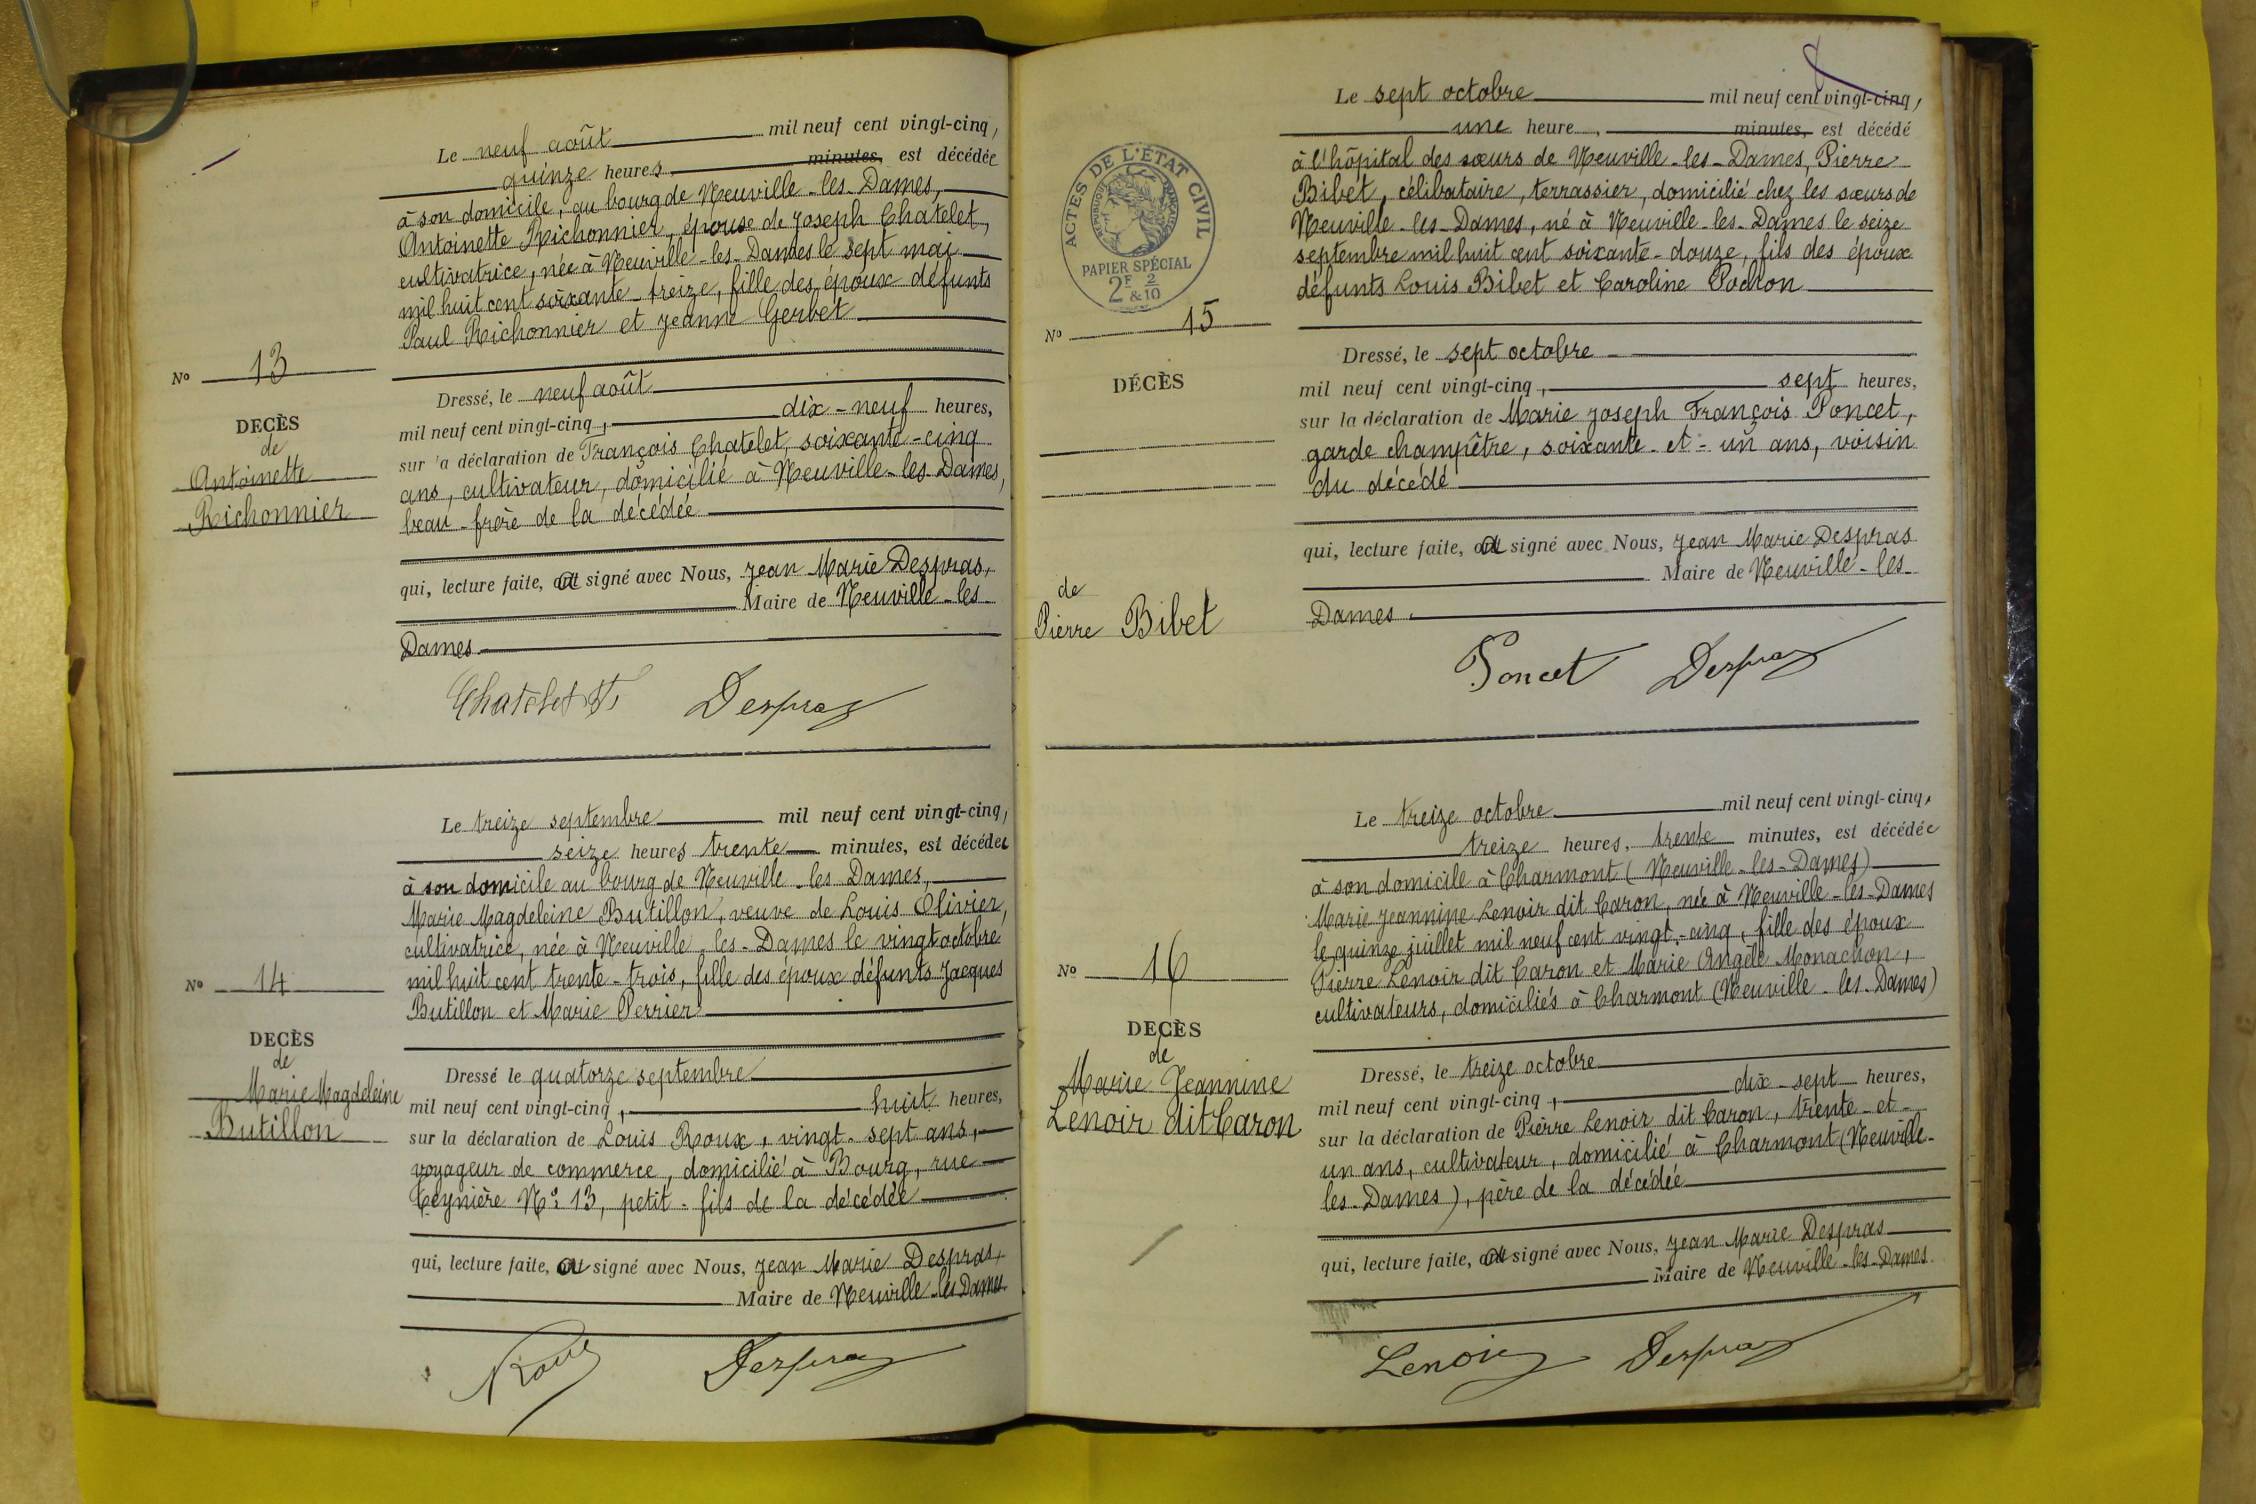 Le neuf août mil neuf cent vingt-cinq,
quinze heures, minutes, est décédée
à son domicile, au bourg de Neuville-les-Dames,
Antoinette Richonnier, épouse de Joseph Chatelet,
cultivatrice, née à Neuville-les-Dames le sept mai
mil huit cent soixante-treize, fille des époux défunts
Paul Richonnier et Jeanne Gerbet
No 13
DECÈS
de
Antoinette
Richonnier
Dressé, le neuf août
mil neuf cent vingt-cinq, dix-neuf heures,
sur la déclaration de François Chatelet, soixante-cinq
ans, cultivateur, domicilié à Neuville-les-Dames,
beau-frère de la décédée
qui, lecture faite, a signé avec Nous, Jean Marie Despras,
Maire de Neuville-les-
Dames
Chatelet Despras
Le treize septembre mil neuf cent vingt-cinq,
seize heures trente minutes, est décédée
à son domicile au bourg de Neuville-les-Dames,
Marie Magdeleine Butillon, veuve de Louis Olivier,
cultivatrice, née à Neuville-les-Dames le vingt octobre
mil huit cent trente-trois, fille des époux défunts Jacques
Butillon et Marie Perrier
No 14
DECÈS
de
Marie Magdeleine
Butillon
Dressé le quatorze septembre
mil neuf cent vingt-cinq, huit heures,
sur la déclaration de Louis Roux, vingt-sept ans,
voyageur de commerce, domicilié à Bourg, rue
Teynière No 13, petit-fils de la décédée
qui, lecture faite, a signé avec Nous, Jean Marie Despras,
Maire de Neuville-les-Dames
Roux Despras
ACTES DE L'ÉTAT CIVIL
RÉPUBLIQUE FRANÇAISE
PAPIER SPÉCIAL
2F & 2/10
Le sept octobre mil neuf cent vingt-cinq,
une heure, minutes, est décédé
à l'hôpital des sœurs de Neuville-les-Dames, Pierre
Bibet, célibataire, terrassier, domicilié chez les sœurs de
Neuville-les-Dames, né à Neuville-les-Dames le seize
septembre mil huit cent soixante-douze, fils des époux
défunts Louis Bibet et Caroline Pochon
No 15
DÉCÈS
de
Pierre Bibet
Dressé, le sept octobre
mil neuf cent vingt-cinq, sept heures,
sur la déclaration de Marie Joseph François Poncet,
garde champêtre, soixante-et-un ans, voisin
du décédé
qui, lecture faite, a signé avec Nous, Jean Marie Despras
Maire de Neuville-les-
Dames.
Poncet Despras
Le treize octobre mil neuf cent vingt-cinq,
treize heures, trente minutes, est décédée
à son domicile à Charmont (Neuville-les-Dames)
Marie Jeannine Lenoir dit Caron, née à Neuville-les-Dames
le quinze juillet mil neuf cent vingt-cinq, fille des époux
Pierre Lenoir dit Caron et Marie Angèle Monachon,
cultivateurs, domiciliés à Charmont (Neuville-les-Dames)
No 16
DECÈS
de
Marie Jeannine
Lenoir dit Caron
Dressé, le treize octobre
mil neuf cent vingt-cinq, dix-sept heures,
sur la déclaration de Pierre Lenoir dit Caron, trente-et-
un ans, cultivateur, domicilié à Charmont (Neuville-
les-Dames), père de la décédée
qui, lecture faite, a signé avec Nous, Jean Marie Despras
Maire de Neuville-les-Dames.
Lenoir Despras